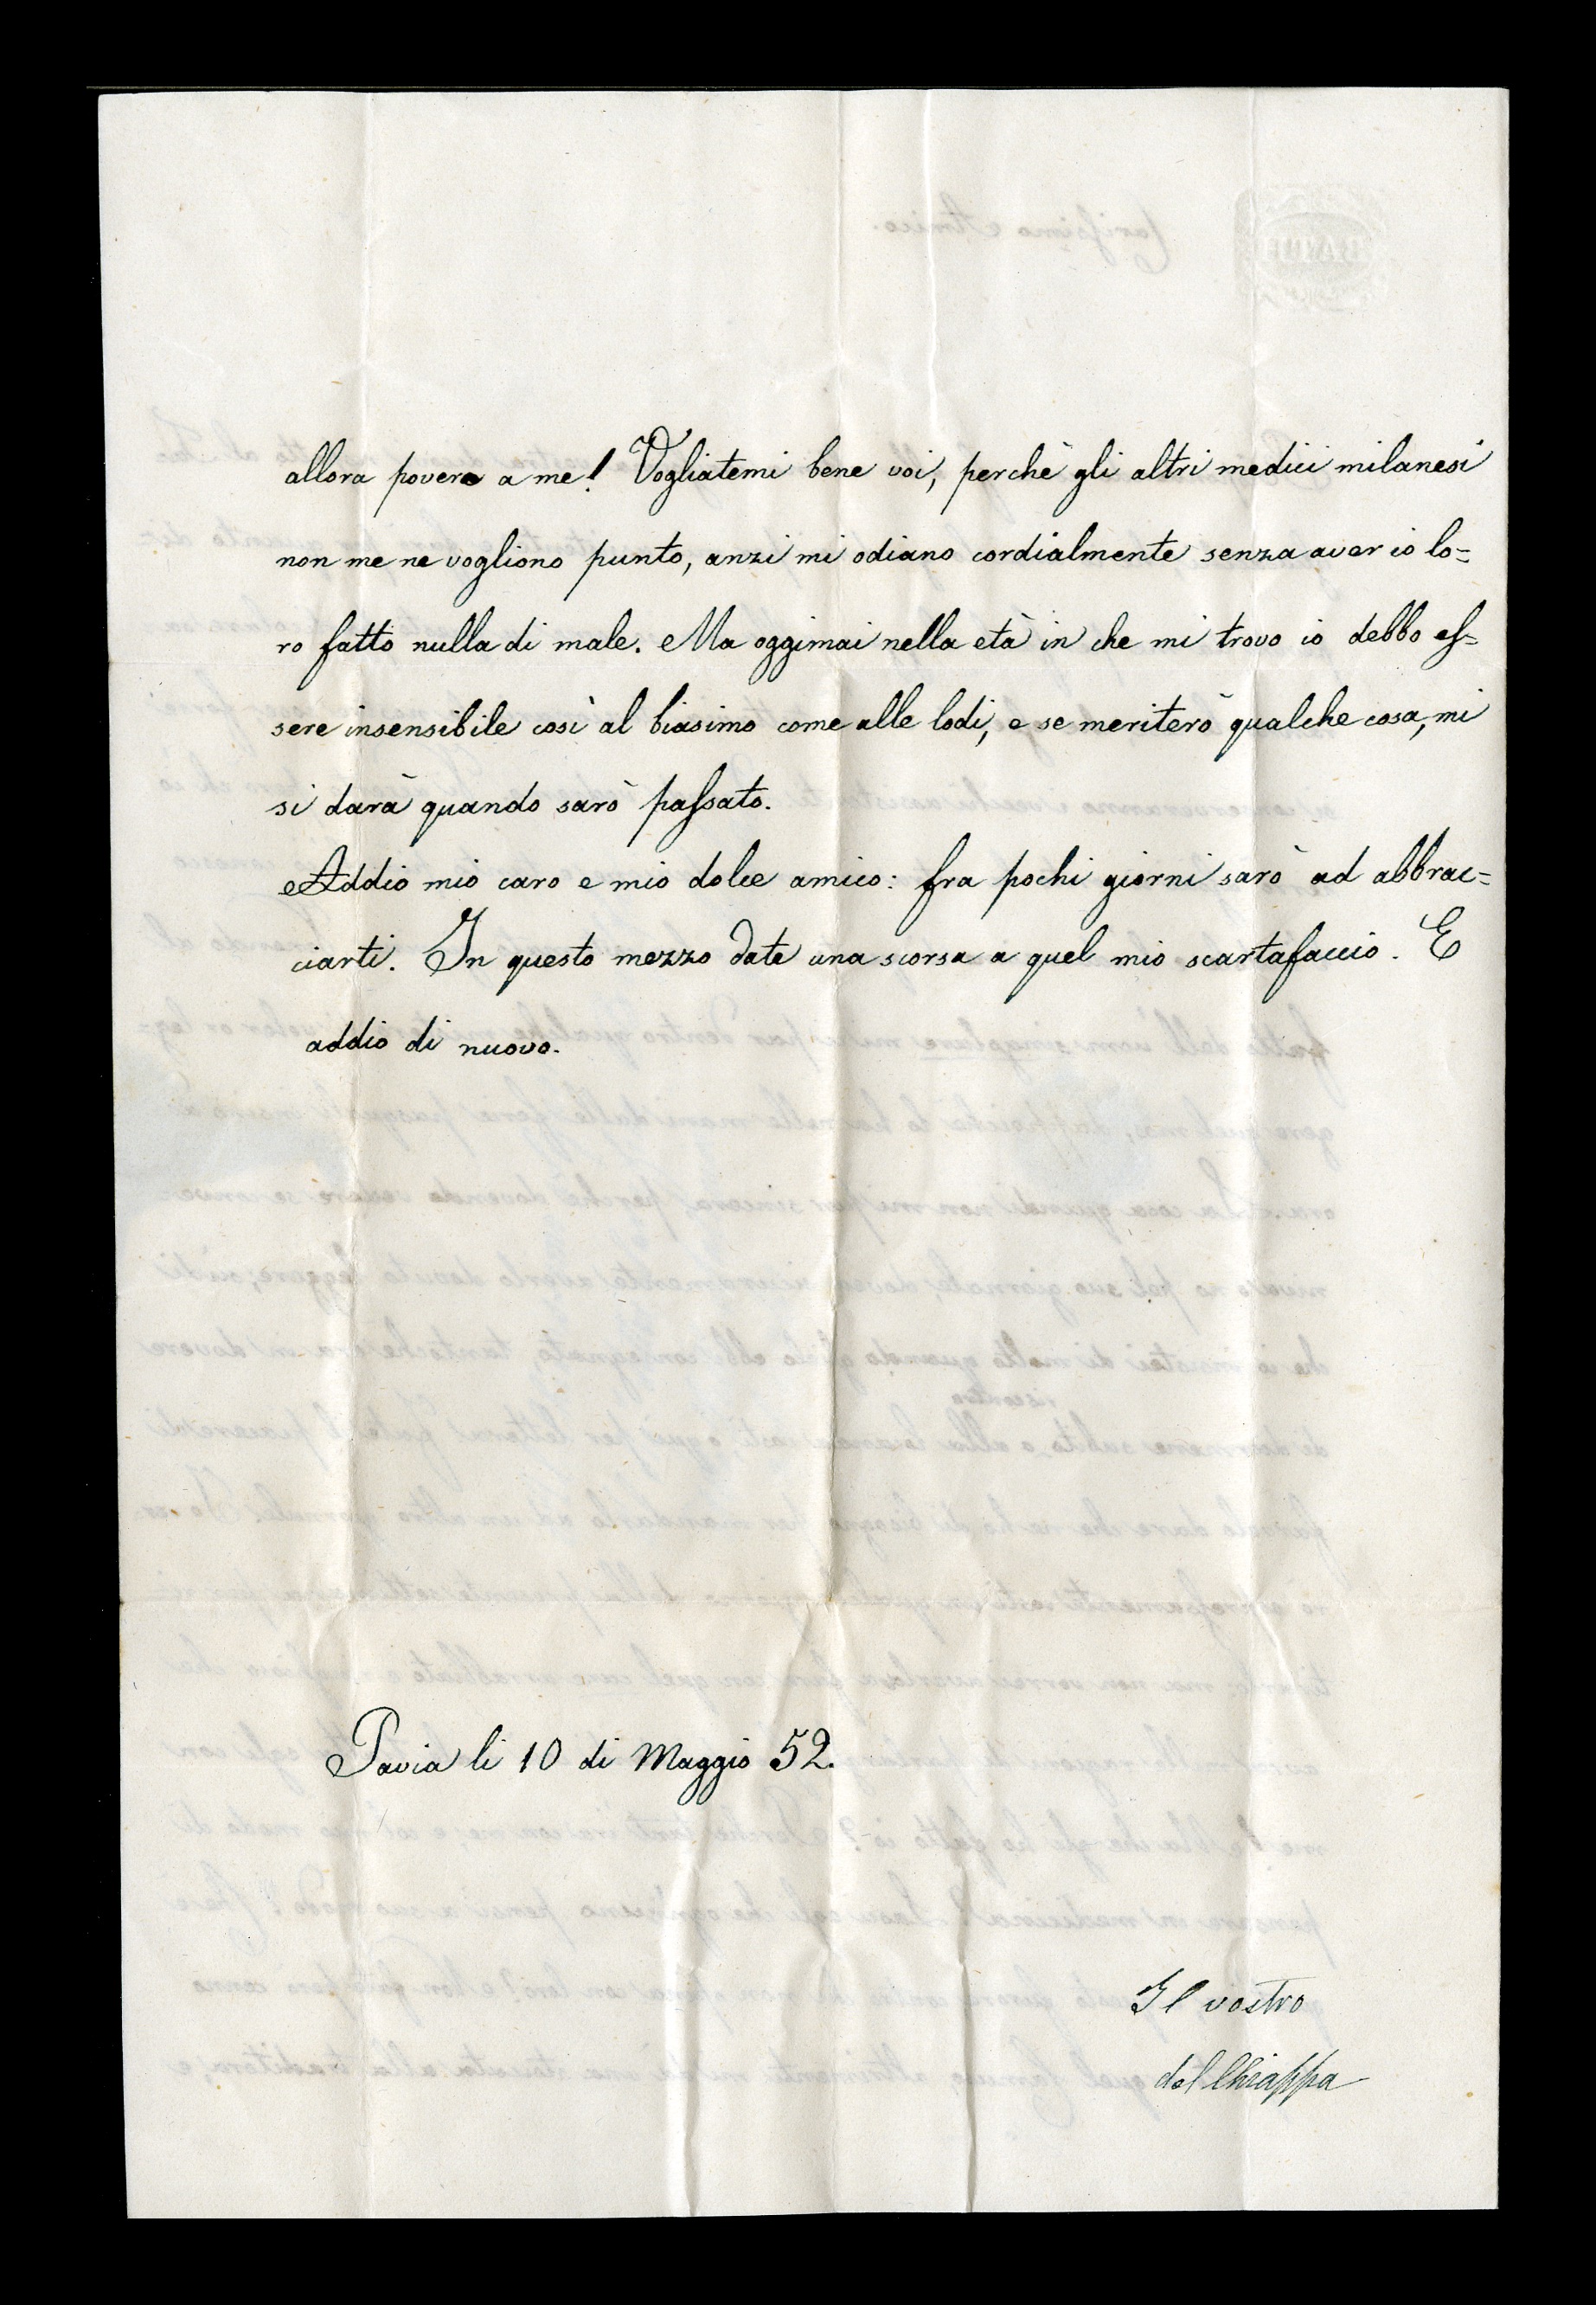 allora povero a me! Vogliatemi bene voi, perchè gli altri medici milanesi
non me ne vogliono punto, anzi mi odiano cordialmente senza aver io lo=
ro fatto nulla di male. Ma oggimai nella età in che mi trovo io debbo es=
sere insensibile così al biasimo come alle lodi, e se meriterò qualche cosa, mi
si darà quando sarò passato.
Addio mio caro e mio dolce amico: fra pochi giorni sarò ad abbrac=
ciarti. In questo mezzo date una scorsa a quel mio scartafaccio. E
addio di nuovo.
Pavia li 10 di Maggio 52.
Il vostro
del Chiappa